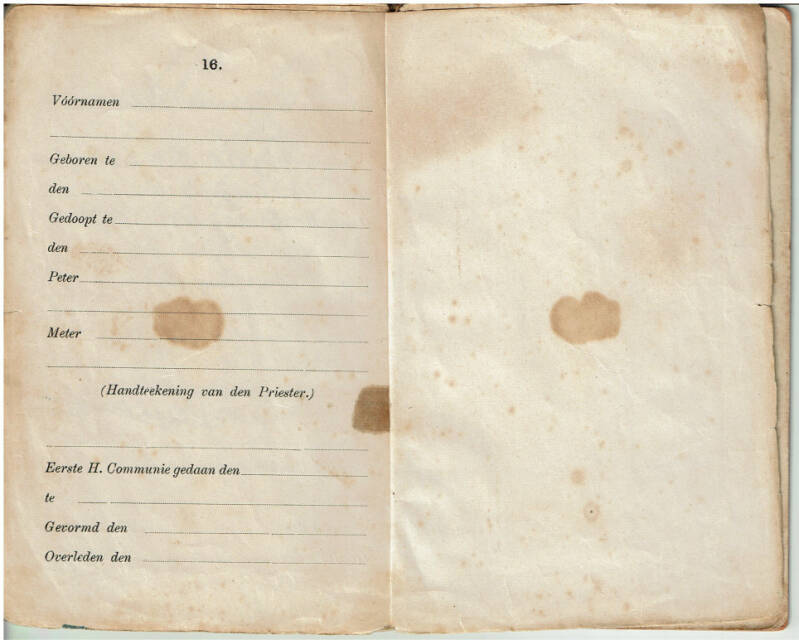 16.
Vóórnamen
Geboren te
den
Gedoopt te
den
Peter
Meter
(Handteekening van den Priester.)
Eerste H. Communie gedaan den
te
Gevormd den
Overleden den